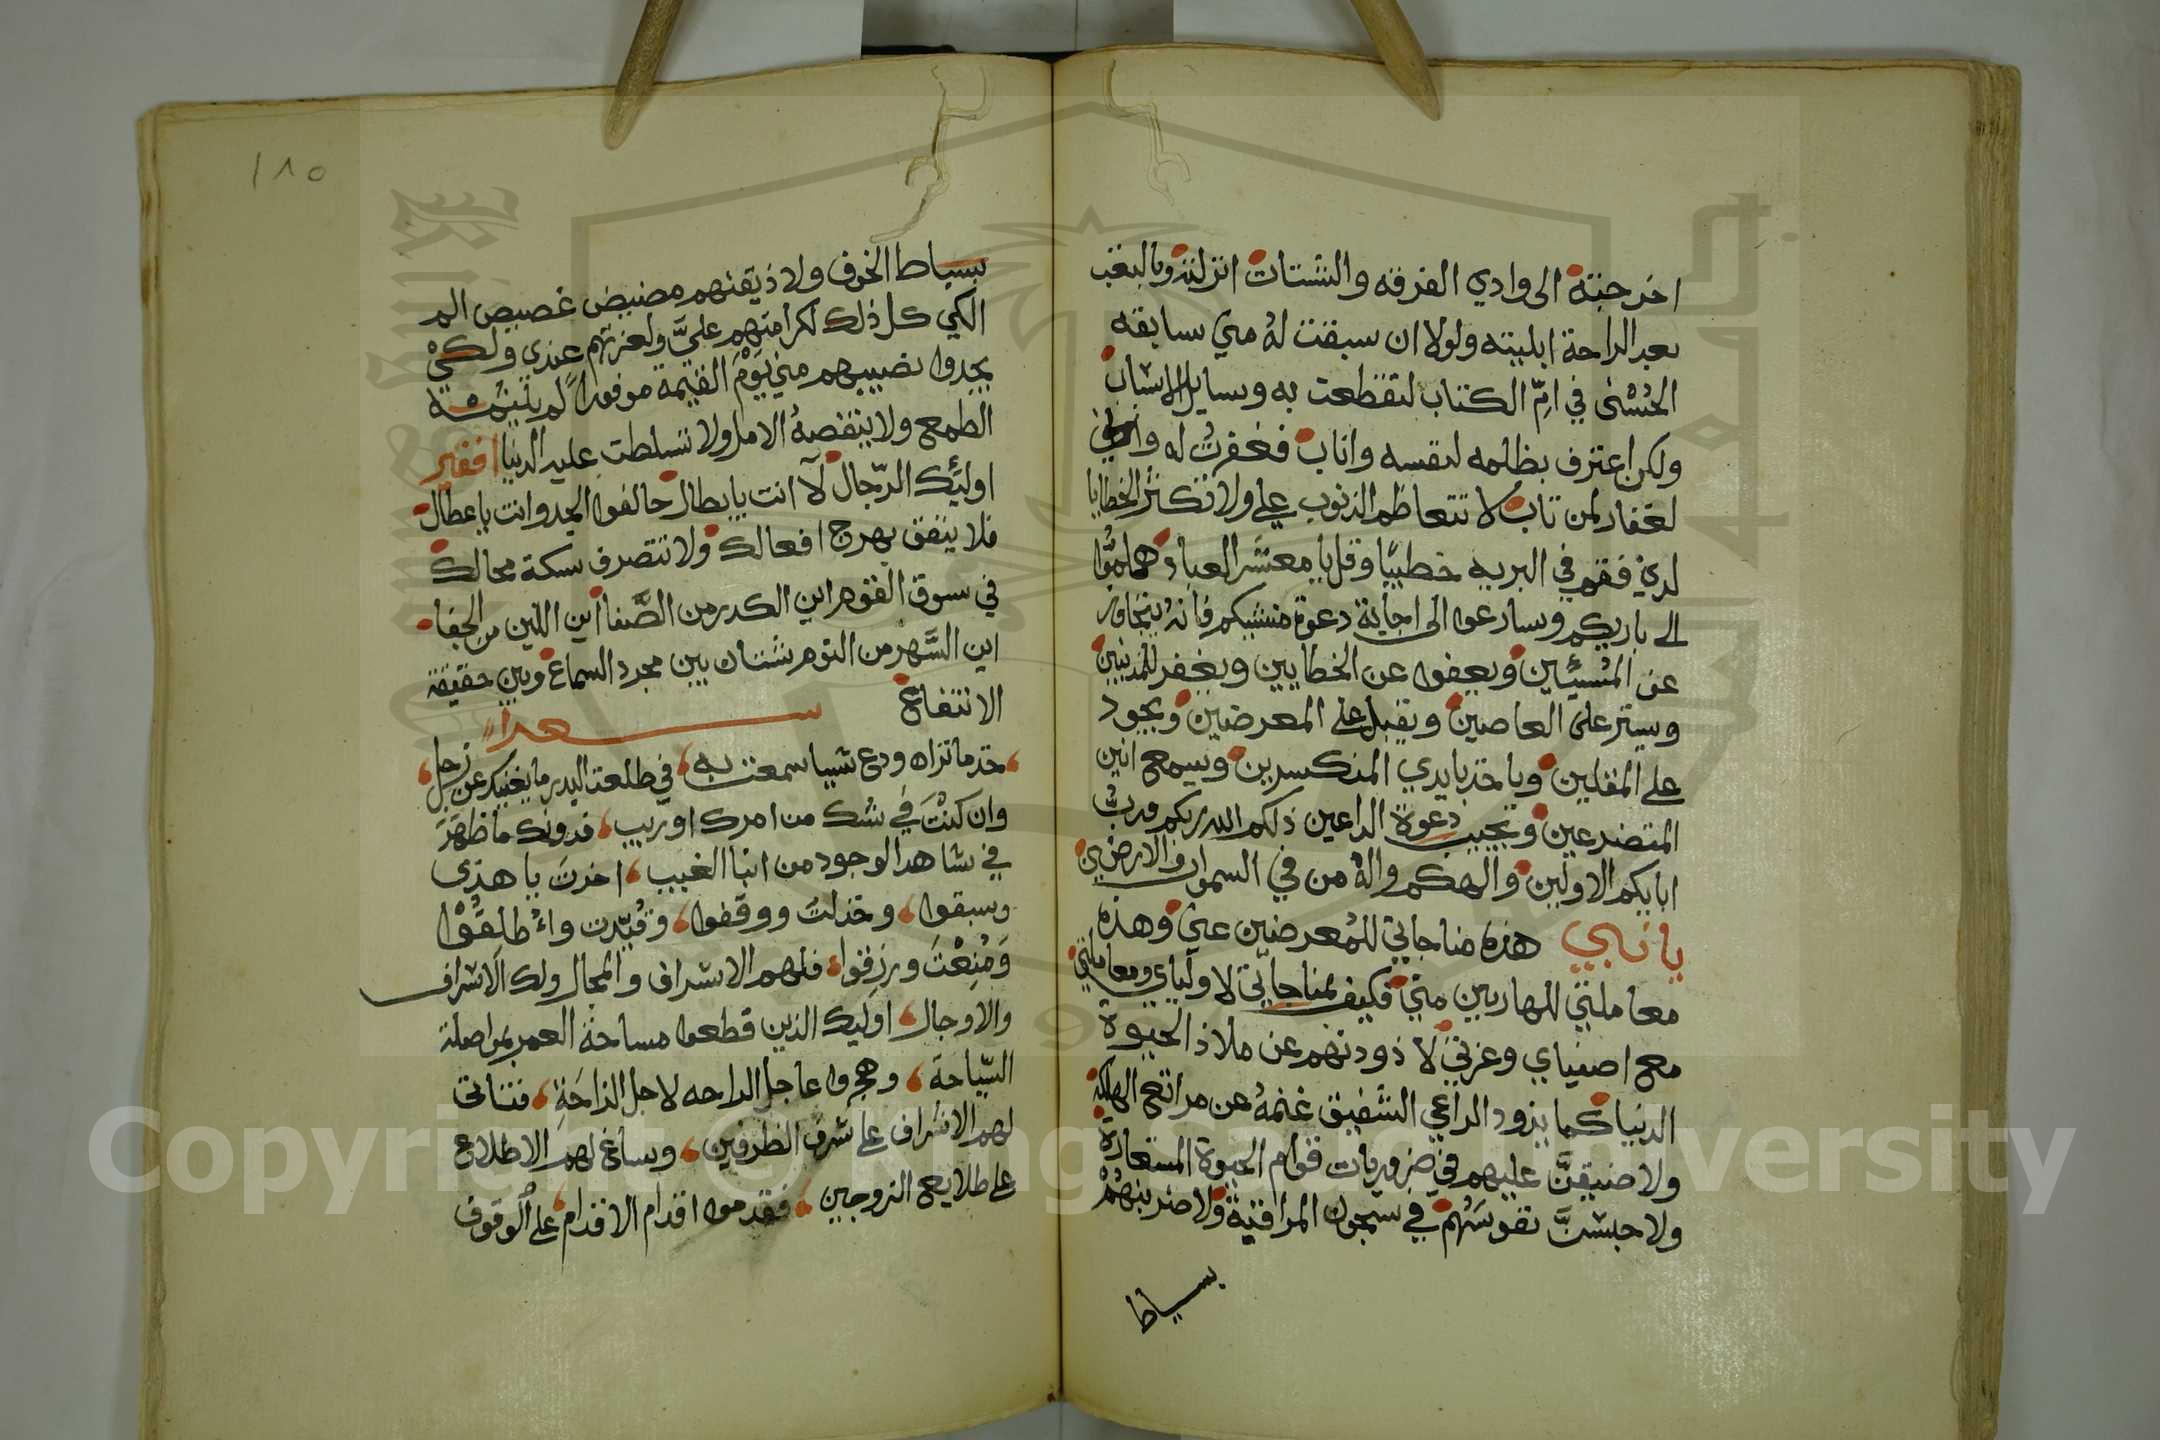 اخرجته الى وادي الفرقه والشتات انزلته وبالتعب
بعد الراحة ابليته ولولا ان سبقت له مني سابقه
الحسنى في امّ الكتاب لتقطعت به وسايل الاسباب
ولكن اعترف بظلمه لنفسه واناب فغفرت له واني
لغفار لمن تاب لا تتعاظم الذنوب علي ولا تكثر الخطايا
لديّ فقم في البريه خطيبًا وقل يا معشر العباد هلموّا
الى باريكم وسارعوا الى اجابة دعوة منشيكم فانه يتجاوز
عن المسيئين ويعفوا عن الخطايين ويغفر للمذنبين
ويستر على العاصين ويقبل على المعرضين ويجود
على المقلين وياخذ بايدي المنكسرين ويسمع انين
المتضرعين ويجيب دعوة الداعين ذلكم الله ربكم ورب
ابايكم الاولين والهكم واله من في السموات والارضين
يا نبي هذه مناجاتي للمعرضين عني وهذه
معاملتي للهاربين مني فكيف بمناجاتي لاوليائي ومعاملتي
مع اصفياي وعزتي لا ذودنهم عن ملاذ الحيوة
الدنيا كما يذود الراعي الشفيق غنمه عن مراتع الهلكة
ولا ضيقنّ عليهم في ضروريات قوام الحيوة المستعارة
ولا حبسنّ نفوسهم في سجون المراقبة ولا ضربنهم
بسياط
١٨٥
بسياط الخوف ولا ذيقنهم مضيض غصيص الم
الكي كل ذلك لكرامتهم عليّ ولعزتهم عندي ولكي
يجدوا نصيبهم مني يوم القيمة موفورا لم يثلمه
الطمع ولا ينقصه الامل ولا تسلطت عليه الدنيا افقير
اوليك الرّجال لا انت يا بطال حالفوا الجد وانت يا عطال
فلا ينفق بهرج افعالك ولا تتصرف سكة محالك
في سوق القوم اين الكدر من الصّفا اين اللين من الجفا
اين السَّهر من النوم شتان بين مجرد السماع وبين حقيقة
الانتفاع شعرا
خذ ما تراه ودع شييا سمعت به في طلعة البدر ما يغنيك عن زحل
وان كنت في شك من امرك او ريب فدونك ما ظهر
في شاهد الوجود من انبا الغيب اخرت يا هذى
وسبقوا وخذلت ووفقوا وقيّدت واطلقوا
ومنعت ورزقوا فلهم الاشراف والمجال ولك الاشراف
والاوجال اوليك الذين قطعوا مساحة العمر بمواصلة
السّياحة وهجروا عاجل الراحه لاجل الراحة فتناتى
لهم الاشراف على شرف الطرفين وساغ لهم الاطلاع
على طلايع الزوجين فقدموا اقدام الاقدام على الوقوف
Copyright © King Saud University